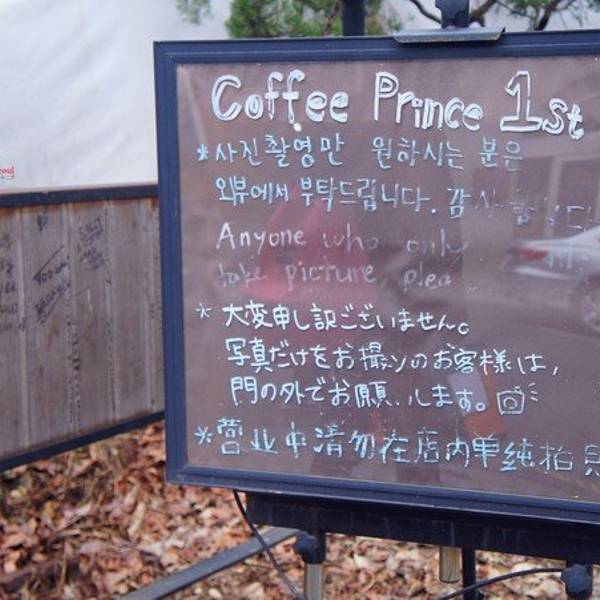 Coffee Prince 1st
*사진촬영만 원하시는 분은
외부에서 부탁드립니다. 감사합니다
Anyone who only
take picture, plea
* 大変申し訳ございません。
写真だけをお撮りのお客様は,
門の外でお願いします。
*营业中请勿在店内单纯拍